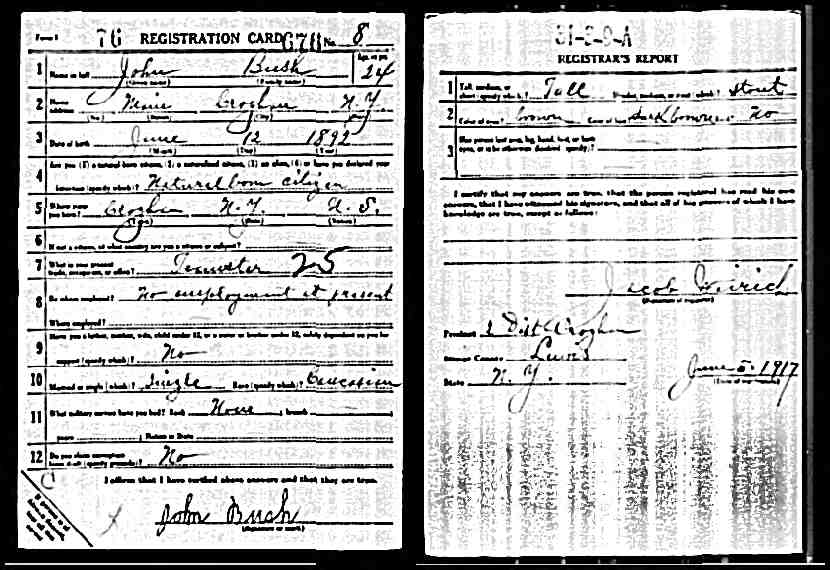 Form 1 76 REGISTRATION CARD 678 No. 8
1 Name in full John Bush Age, in yrs. 24
(Given name) (Family name)
2 Home address Main Croghan N.Y.
(No.) (Street) (City) (State)
3 Date of birth June 12 1892
(Month) (Day) (Year)
4 Are you (1) a natural-born citizen, (2) a naturalized citizen, (3) an alien, (4) or have you declared your
intention (specify which)? Natural born citizen
5 Where were you born? Croghan N.Y. U.S.
(Town) (State) (Nation)
6 If not a citizen, of what country are you a citizen or subject?
7 What is your present trade, occupation, or office? Teamster 25
8 By whom employed? No employment at present
Where employed?
9 Have you a father, mother, wife, child under 12, or a sister or brother under 12, solely dependent on you for
support (specify which)? No
10 Married or single (which)? Single Race (specify which)? Caucasian
11 What military service have you had? Rank None ; branch
years ; Nation or State
12 Do you claim exemption from draft (specify grounds)? No
I affirm that I have verified above answers and that they are true.
John Bush
(Signature or mark)
31-3-9-A
REGISTRAR'S REPORT
1 Tall, medium, or short (specify which)? Tall Slender, medium, or stout (which)? Stout
2 Color of eyes? brown Color of hair? dark brown No
3 Has person lost arm, leg, hand, foot, or both eyes, or is he otherwise disabled (specify)?
I certify that my answers are true, that the person registered has read his own
answers, that I have witnessed his signature, and that all of his answers of which I have
knowledge are true, except as follows:
Jacob Weirich
(Signature of registrar)
Precinct 2 Dist Croghan
County Lewis
State N.Y. June 5, 1917
(Date of registration)